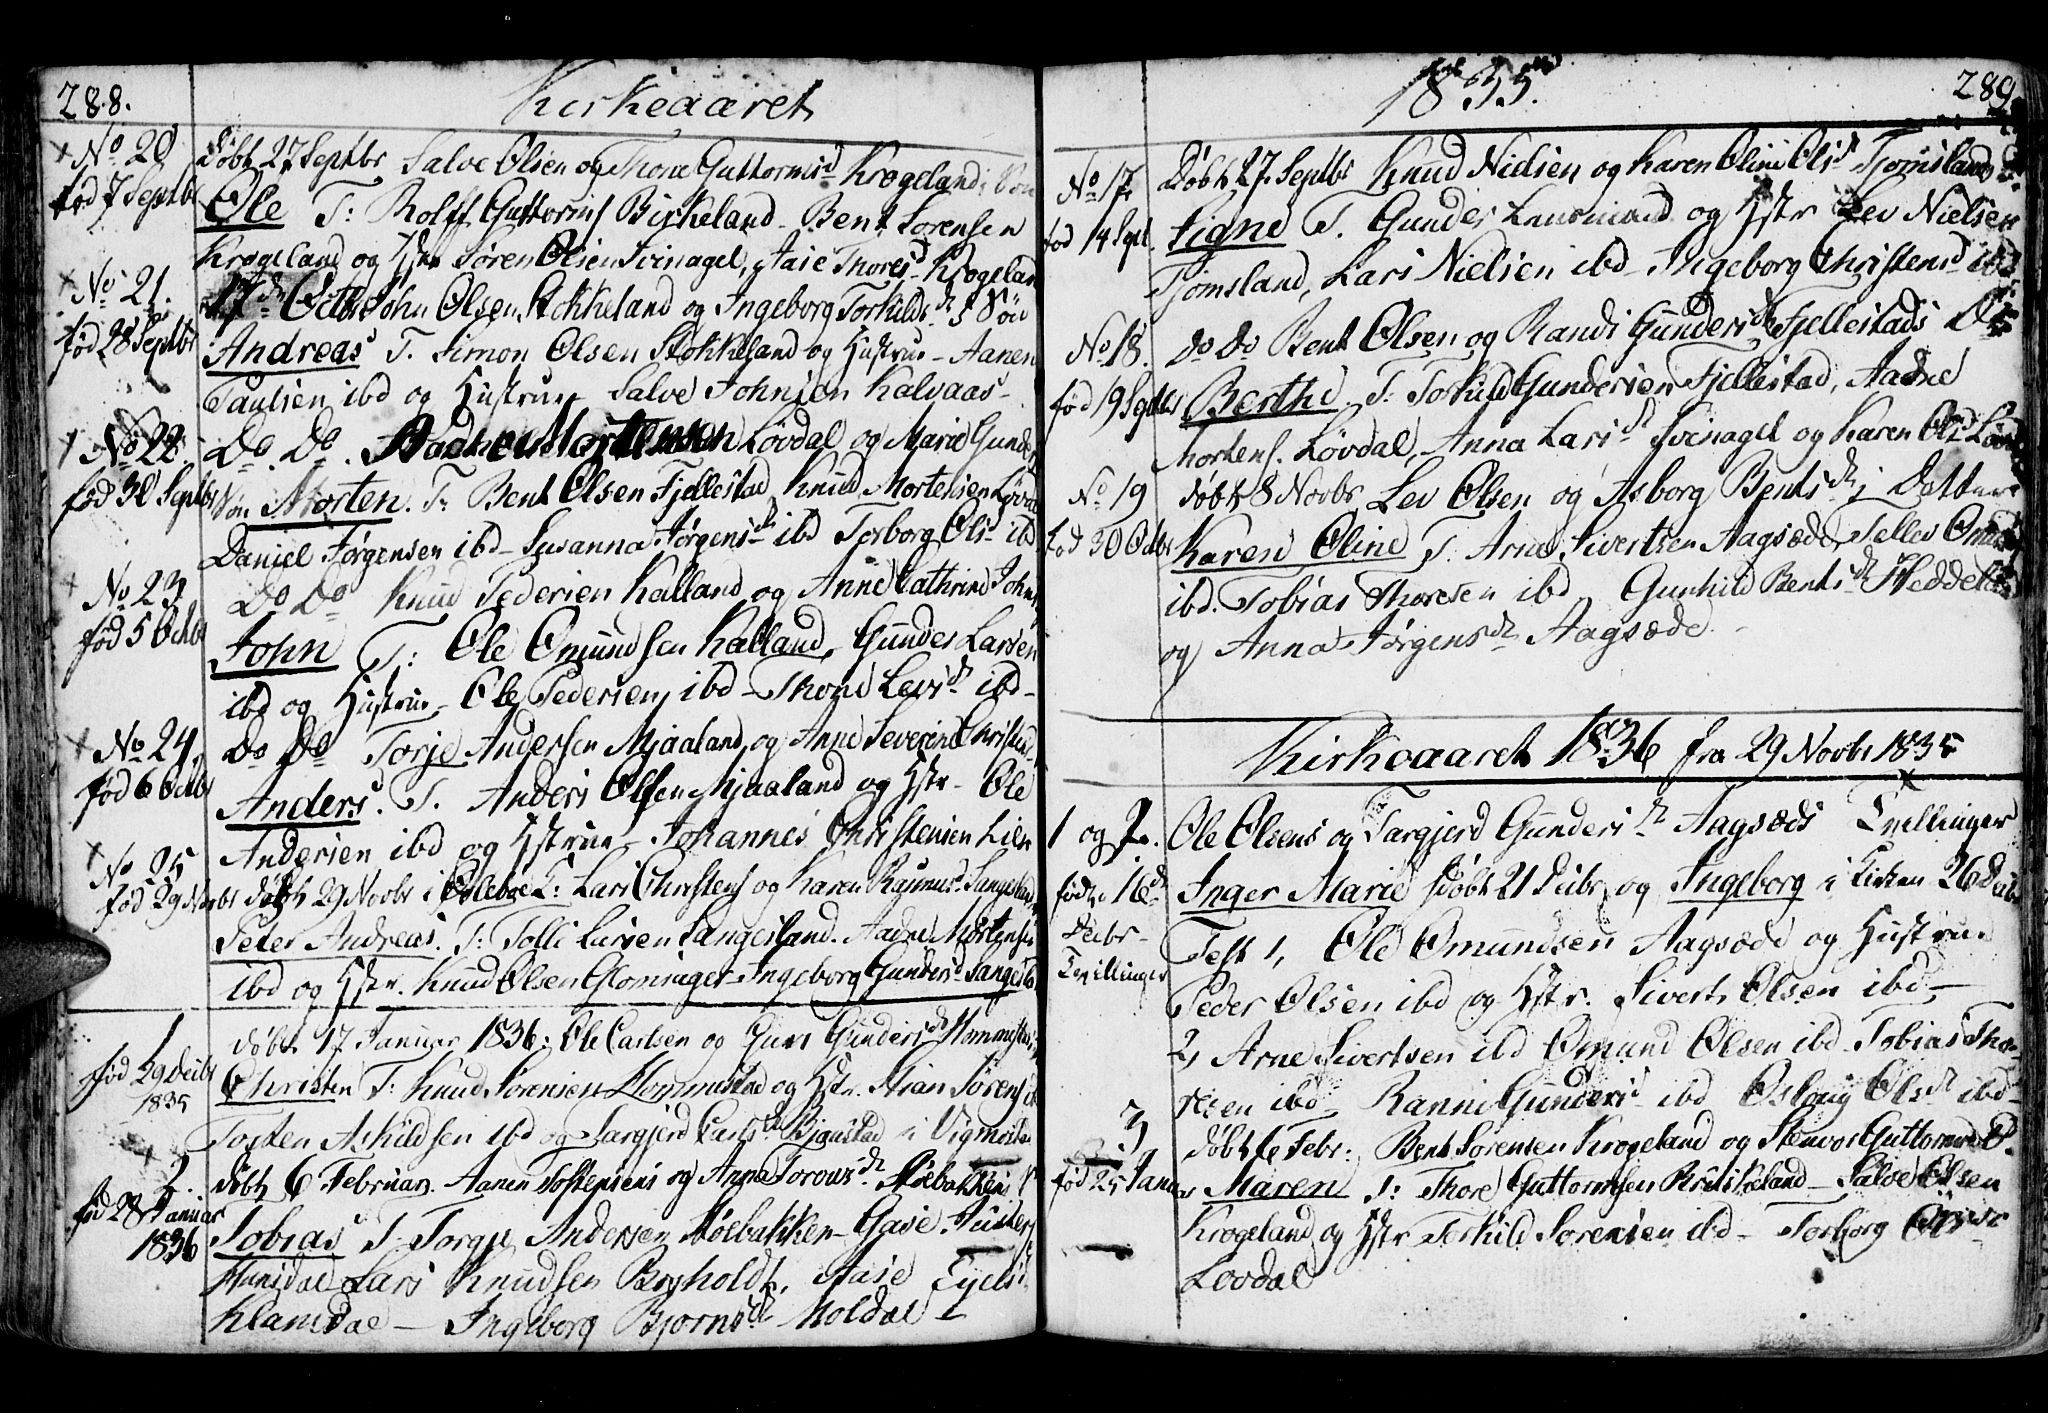 288.
Kirkeaaret
No 20
fød 7 Septbr
Døbt 27 Septbr Salve Olsen og Thone Guttormsd Krogeland
Ole T: Rolff Guttorms Birkeland - Bent Sørensen
Krogeland og Hstr Søren Olsen Svinagel, Aasie Thoresd Krogeland
No 21.
fød 28 Septbr
17de Octbr John Olsen Stokkeland og Ingeborg Torkildsdr's Søn
Andreas T. Simon Olsen Stokkeland og Hustrue - Aanen
Paulsen ibd og Hustrue Salve Johnsen Kalvaas -
No 22.
fød 30 Septbr
Do. Do. Aadne Mortensen Løvdal og Marie Gunders
Søn Morten. T: Bent Olsen Fjellestad Knud Mortensen Løvdal
Daniel Jørgensen ibd - Susanna Jørgensdr ibd Torborg Olsd ibd
No 23
fød 5 Octbr
Do Do Knud Pedersen Kalland og Anne Cathrine Johns
John T: Ole Omundsen Kalland, Gunder Larsen
ibd og Hustrue - Ole Pedersen ibd - Thone Levisdr ibd -
No 24.
fød 6 Octbr
Do Do Torje Andersen Mjaaland og Anne Severine Christens
Anders. T. Anders Olsen Mjaaland og Hstr - Ole
Andersen ibd og Hstrue - Johannes Christensen Lien
No 25
fød 29 Novbr
Døbt 29 Novbr i Øslebøe K: Lars Christens og Karen Rasmusd Sangesland
Peter Andreas. T: Tolli Larsen Sangesland. Aadne Mortensen
ibd og Hstr. Knud Olsen Glomsager - Ingeborg Gundersd Sangesl
1
fød 29 Decbr
1835
døbt 17 Januar 1836: Ole Carlsen og Guri Gundersdr Hommestad
Christen T: Knud Sørensen Hommestad og Hstr. Stian Sørens ibd
Torsten Askildsen ibd og Targjerd Carlsdr Bjgastad i Vigmostad
2.
fød 28 Januar
1836
døbt 6 Februar. Aanen Tostensens og Anna Torovsdr Støebakken
Tobias T Torgje Andersen Støebakken - Gase
Lars Knudsen Begholdt, Aasie Ejels
Klamsdal - Ingeborg Bjørnsdr Moldal -
1835.
289.
No 17
fød 14 Sept.
Døbt 27. Septbr Knud Nielsen og Karen Oline Olsd Tjomsland
Signe T. Gunder Lensmand og Hstr Lev Nielsen
Tjomsland, Lars Nielsen ibd - Ingeborg Christensd ibd
No 18.
fød 19 Septbr
Do Do Bent Olsen og Randi Gundersdr Fjellestads Dr
Berthe. T: Torkild Gundersen Fjellestad, Aadne
Mortens. Løvdal, Anna Larsdr Svinagel og Karen Olsd Løvdal
No 19
fød 30 Octbr
døbt 8 Novbr Lev Olsen og Asborg Bentsdr's Datter
Karen Oline T. Arne Sivertsen Aagsæde, Tellev Omunds
ibd. Tobias Thoresen ibd Gunhild Bentsdr Heddeland
og Anna Jørgensdr Aagsæde.
Kirkeaaret 1836 fra 29 Novbr 1835
1 og 2.
fødte 16de
Decbr -
Tvillinger
Ole Olsens og Targjerd Gundersdr Aagsæds Tvillinger
Inger Marie døbt 21 Decbr og Ingeborg i Kirken 26 Decbr
Test 1, Ole Omundsen Aagsæde og Hustrue
Peder Olsen ibd og Hstr. Sivert Olsen ibd, -
2, Arne Sivertsen ibd Omund Olsen ibd - Tobias Tho-
resen ibd, Ranni Gundersd ibd Oslaug Olsdr ibd -
3
fød 25 Januar
døbt 6 Febr: Bent Sørensen Krogeland og Stenvor Guttormsd D.
Maren T: Thore Guttormsen Birkeland - Salve Olsen
Krogeland og Hstr Torkild Sørensen ibd - Torborg
Lovdal